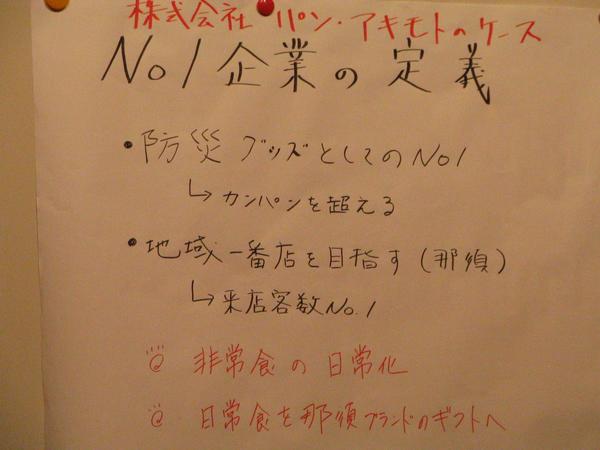 株式会社 パン・アキモトのケース
No1企業の定義
• 防災グッズとしてのNo1
↳ カンパンを超える
• 地域一番店を目指す(那須)
↳ 来店客数No.1
@ 非常食の日常化
@ 日常食を那須ブランドのギフトへ